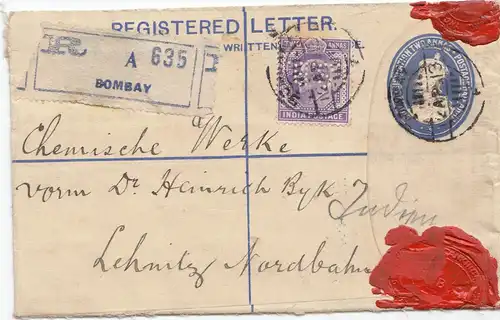 REGISTERED LETTER.
R
A 635
BOMBAY
ANNAS
INDIA POSTAGE
Chemische Werke
vorm Dr Heinrich Byk
Indien
Lehnitz Nordbahn